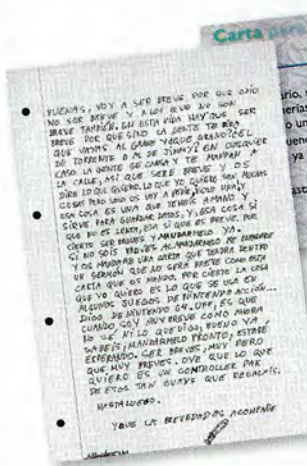 Carta
BUENAS, VOY A SER BREVE POR QUE ODIO
NO SER BREVE Y A LOS QUE NO SON
BREVE TAMBIÉN. EN ESTA VIDA HAY QUE SER
BREVE POR QUE SINO LA GENTE TE DIGA
QUE VAYAS AL GRANO
DE TORRENTE O AL DE JIMMY) EN CUALQUIER
CASO LA GENTE SE CANSA Y TE MANDAN A
LA CALLE, ASÍ QUE SERÉ BREVE Y OS
DIRÉ LO QUE QUIERO. LO QUE YO QUIERO SON MUCHAS
COSAS PERO SOLO OS VOY A PEDIR, SOLO UNA, Y
ESA COSA ES UNA QUE TENEIS AMANO Y
SIRVE PARA GUARDAR DATOS, Y, ESA COSA SI
QUE NO ES LENTA, ESA SI QUE ES BREVE. POR
CIERTO SER BREVES Y MANDARMELO YA.
SI NO SOIS BREVES AL MANDARMELO ME ENFADARE
Y OS MANDARE UNA CARTA QUE TENDRA DENTRO
UN SERMON QUE NO SERÁ BREVE COMO ESTA
CARTA QUE OS MANDO. POR CIERTO LA COSA
QUE YO QUIERO ES LO QUE SE USA EN
ALGUNOS JUEGOS DE NINTENDO ACCIÓN...
DIGO DE NINTENDO 64. UFF, ES QUE
CUANDO SOY MUY BREVE COMO AHORA
NO SE NI LO QUE DIGO, BUENO YA
SABEIS, MANDARMELO PRONTO, ESTARÉ
ESPERANDO. SER BREVES, MUY PERO
QUE MUY BREVES. OYE QUE LO QUE
QUIERO ES UN CONTROLLER PAK
DE ESOS TAN GUAYS QUE REGALAIS.
HASTA LUEGO.
Y QUE LA BREVEDAD OS ACOMPAÑE